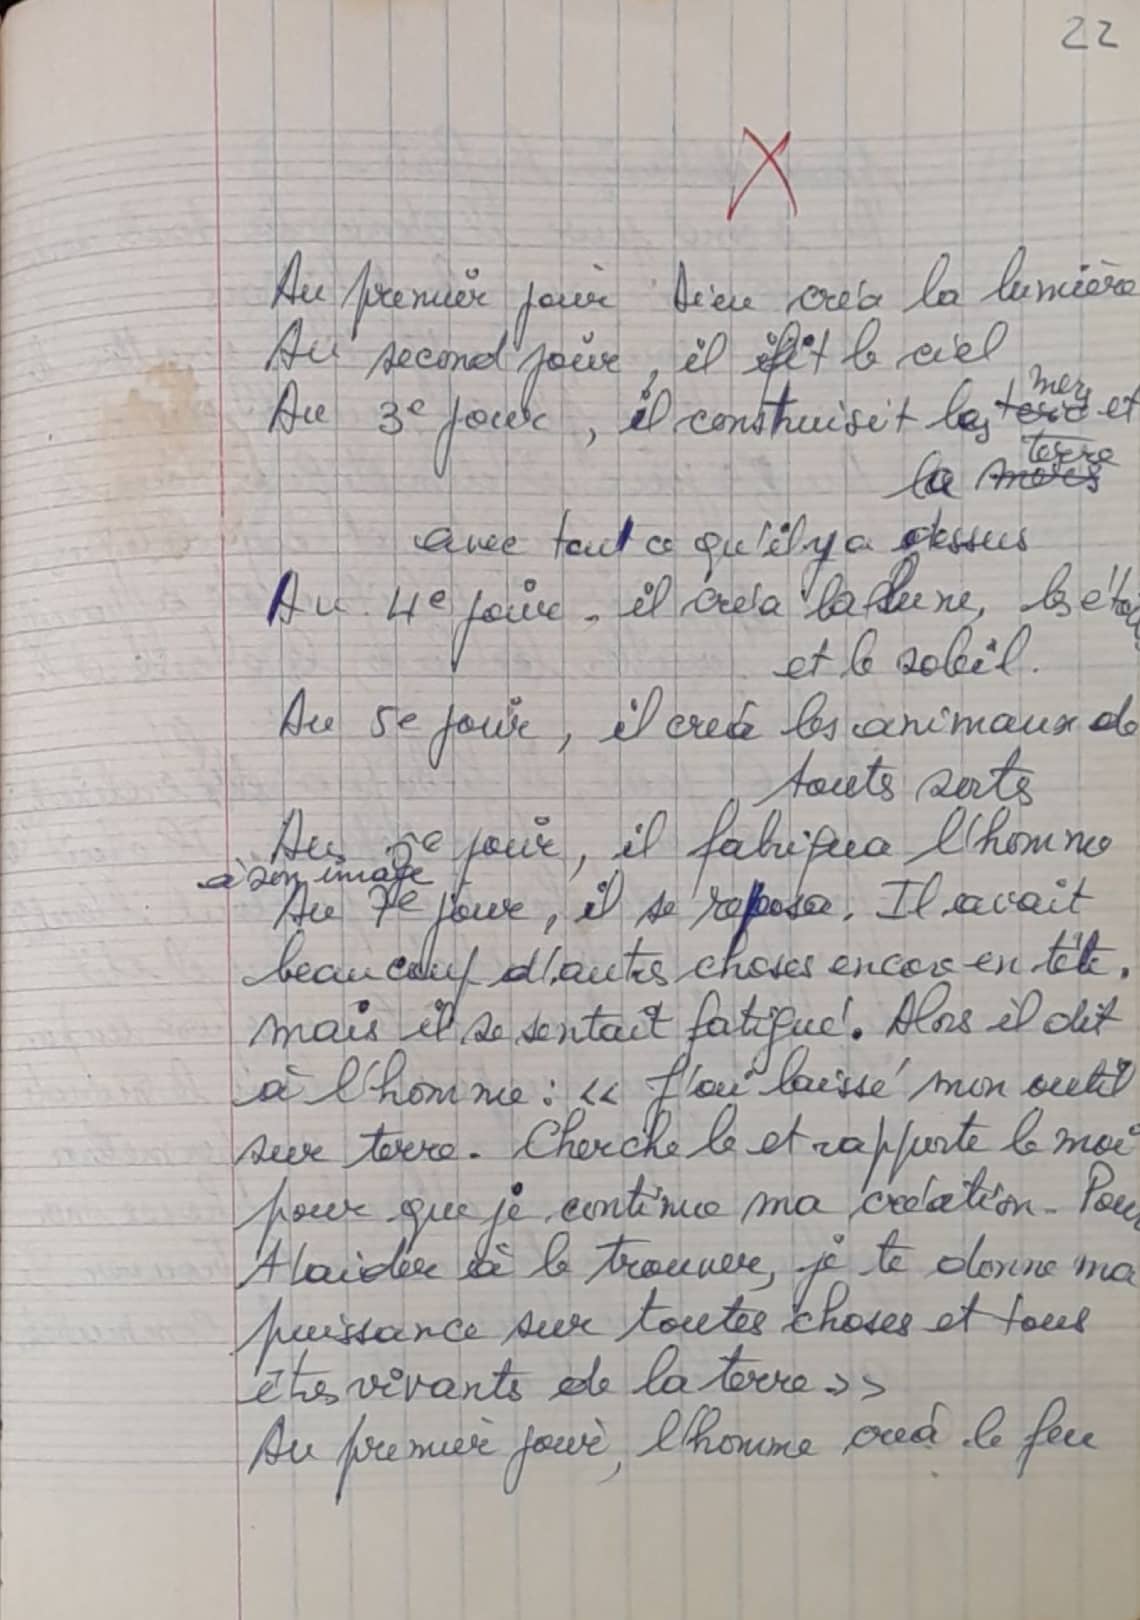 22
X
Au premier jour Dieu créa la lumière
Au second jour, il fit le ciel
Au 3e jour, il construisit les terre mers et
la mers terre
avec tout ce qu'il y a dessus
Au 4e jour, il créa la lune, les étoil
et le soleil.
Au 5e jour, il créa les animaux de
touts sorts
Au e jour, il fabriqua l'homme
à son image
Au 7e jour, il se reposa. Il avait
beaucoup d'autres choses encore en tête.
mais il se sentait fatigué. Alors il dit
à l'homme : << J'ai laissé mon outil
sur terre. Cherche le et rapporte le moi
pour que je continue ma création. Pour
t'aider à le trouver, je te donne ma
puissance sur toutes choses et tous
êtres vivants de la terre >>
Au premier jour, l'homme créa le feu